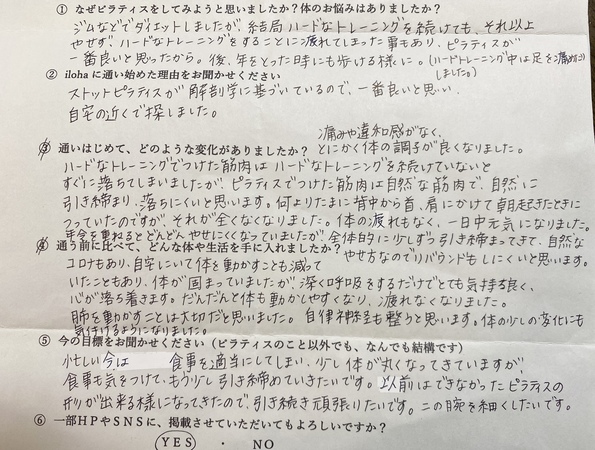 ① なぜピラティスをしてみようと思いましたか？体のお悩みはありましたか？
ジムなどでダイエットしましたが、結局ハードなトレーニングを続けても、それ以上
やせず ハードなトレーニングをすることに疲れてしまった事もあり、ピラティスが
一番良いと思ったから。後、年をとった時にも歩ける様に。(ハードトレーニング中は足を痛めたり
しました。)
② ilohaに通い始めた理由をお聞かせください
ストットピラティスが解剖学に基づいているので、一番良いと思い、
自宅の近くで探しました。
痛みや違和感がなく、
③ 通いはじめて、どのような変化がありましたか？ とにかく体の調子が良くなりました。
ハードなトレーニングでつけた筋肉はハードなトレーニングを続けていないと
すぐに落ちてしまいましたが、ピラティスでつけた筋肉は自然な筋肉で、自然に
引き締まり、落ちにくいと思います。何よりたまに背中から首、肩にかけて朝起きたときに
つっていたのですが、それが全くなくなりました。体の疲れもなく、一日中元気になりました。
年令を重ねるとどんどんやせにくくなっていましたが、全体的に少しずつ引き締まってきて、自然な
④ 通う前に比べて、どんな体や生活を手に入れましたか？ やせ方なのでリバウンドもしにくいと思います。
コロナもあり、自宅にいて体を動かすことも減って
いたこともあり、体が固まっていましたが、深く呼吸をするだけでとても気持ち良く、
心が落ち着きます。だんだんと体も動かしやすくなり、疲れなくなりました。
肺を動かすことは大切だと思いました。自律神経も整うと思います。体の少しの変化にも
気付けるようになりました。
⑤ 今の目標をお聞かせください（ピラティスのこと以外でも、なんでも結構です）
忙しい今は 食事を適当にしてしまい、少し体が丸くなってきていますが、
食事も気をつけて、もう少し引き締めていきたいです。以前はできなかったピラティスの
形が出来る様になってきたので、引き続き頑張りたいです。二の腕を細くしたいです。
⑥ 一部HPやSNSに、掲載させていただいてもよろしいですか？
YES ・ NO